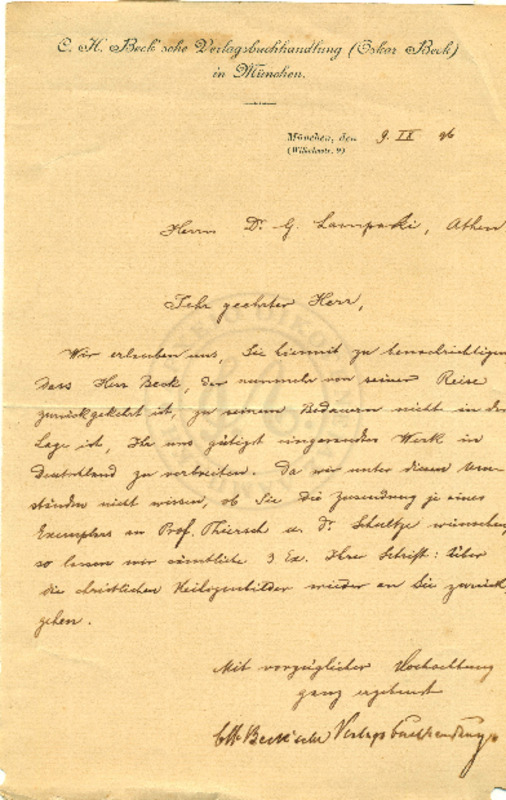 C. H. Beck'sche Verlagsbuchhandlung (Oskar Beck)
in München.
München, den 9. IX 96
(Wilhelmstr. 9)
Herrn Dr. G. Lampaki, Athen
Sehr geehrter Herr,
Wir erlauben uns, Sie hiermit zu benachrichtigen
dass Herr Beck, der nunmehr von seiner Reise
zurückgekehrt ist, zu seinem Bedauern nicht in der
Lage ist, Ihr uns gütigst eingesandtes Werk in
Deutschland zu vertreiben. Da wir unter diesen Um-
ständen nicht wissen, ob Sie die Zusendung je eines
Exemplars an Prof. Thiersch u. Dr. Schultze wünschen,
so lassen wir sämtliche 3 Ex. Ihrer Schrift: Über
die christlichen Heiligenbilder wieder an Sie zurück
gehen.
Mit vorzüglicher Hochachtung
ganz ergebenst
CHBeck'sche Verlagsbuchhandlung